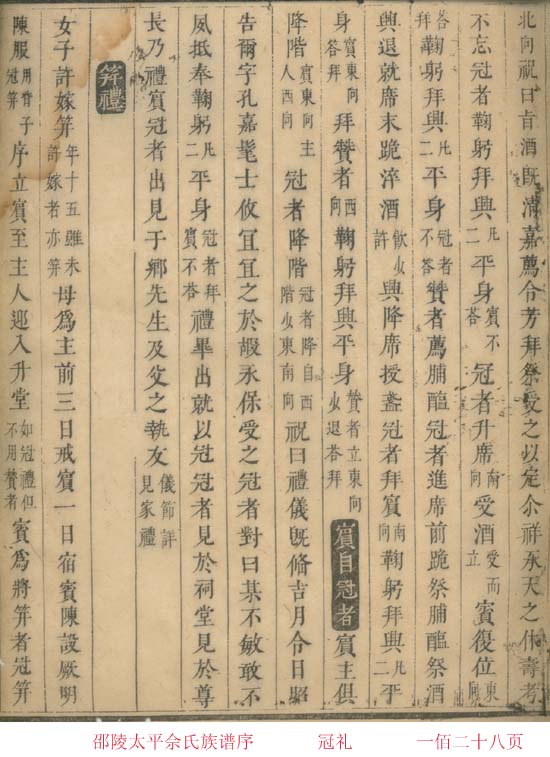 北向祝曰旨酒旣清嘉薦令芳拜祭受之以定尒祥承天之休壽考
不忘冠者鞠躬拜興凡二平身賓不答冠者升席南向受酒受而立賓復位東向
各拜鞠躬拜興凡二平身冠者不答贊者薦脯醢冠者進席前跪祭脯醢祭酒
興退就席末跪淬酒飲少許興降席授盞冠者拜賓南向鞠躬拜興凡二平
身賓東向答拜拜贊者西向鞠躬拜興平身贊者立東向少退答拜賓自冠者賓主俱
降階賓東向主人西向冠者降階冠者降自西階少東南向祝曰禮儀旣脩吉月令日昭
告爾字孔嘉髦士攸宜宜之於嘏永保受之冠者對曰某不敏敢不
夙抵奉鞠躬凡二平身冠者拜賓不答禮畢出就以冠冠者見於祠堂見於尊
長乃禮賓冠者出見于鄉先生及父之執友儀節詳見家禮
笄禮
女子許嫁笄年十五雖未許嫁者亦笄母爲主前三日戒賓一日宿賓陳設厥明
陳服用背子冠笄序立賓至主人迎入升堂如冠禮但不用贊者賓爲將笄者冠笄
邵陵太平佘氏族谱序 冠礼 一佰二十八页